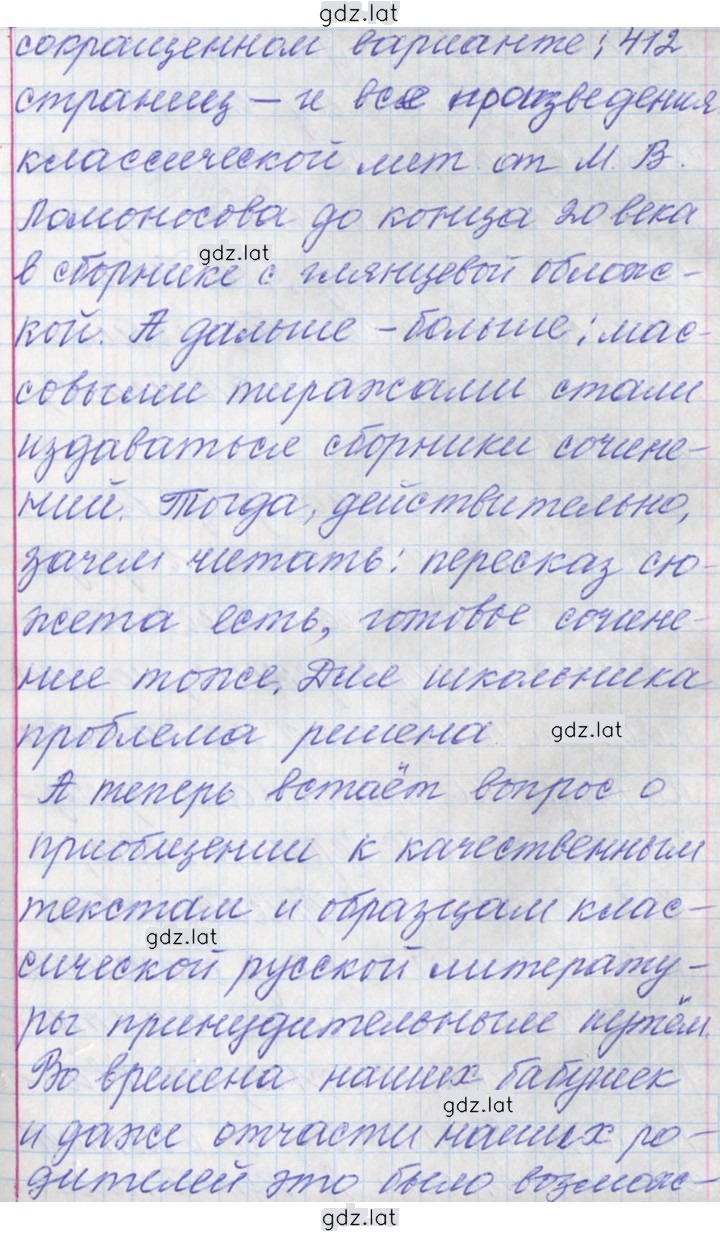 gdz.lat
сокращенном варианте; 412
страниц – и все произведения
классической лит. от М. В.
Ломоносова до конца 20 века
gdz.lat
в сборнике с глянцевой облож-
кой. А дальше – больше: мас-
совыми тиражами стали
издаваться сборники сочине-
ний. Тогда, действительно,
зачем читать: пересказ сю-
жета есть, готовое сочине-
ние тоже. Для школьника
проблема решена.
gdz.lat
А теперь встаёт вопрос о
приобщении к качественным
текстам и образцам клас-
gdz.lat
сической русской литерату-
ры принудительным путём.
Во времена наших бабушек
gdz.lat
и даже отчасти наших ро-
дителей это было возмож-
gdz.lat